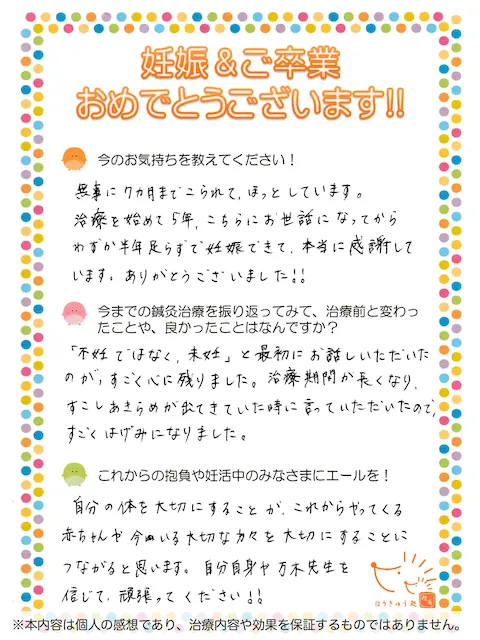 妊娠&ご卒業
おめでとうございます!!
今のお気持ちを教えてください！
無事に7カ月までこられて、ほっとしています。
治療を始めて5年、こちらにお世話になってから
わずか半年足らずで妊娠できて、本当に感謝して
います。ありがとうございました!!
今までの鍼灸治療を振り返ってみて、治療前と変わっ
たことや、良かったことはなんですか？
「不妊ではなく、未妊」と最初にお話しいただいた
のが、すごく心に残りました。治療期間が長くなり、
すこしあきらめが出てきていた時に言っていただいたので、
すごくはげみになりました。
これからの抱負や妊活中のみなさまにエールを！
自分の体を大切にすることが、これからやってくる
赤ちゃんや今いる大切な方々を大切にすることに
つながると思います。自分自身や万木先生を
信じて、頑張ってください!!
はりきゅう処
※本内容は個人の感想であり、治療内容や効果を保証するものではありません。